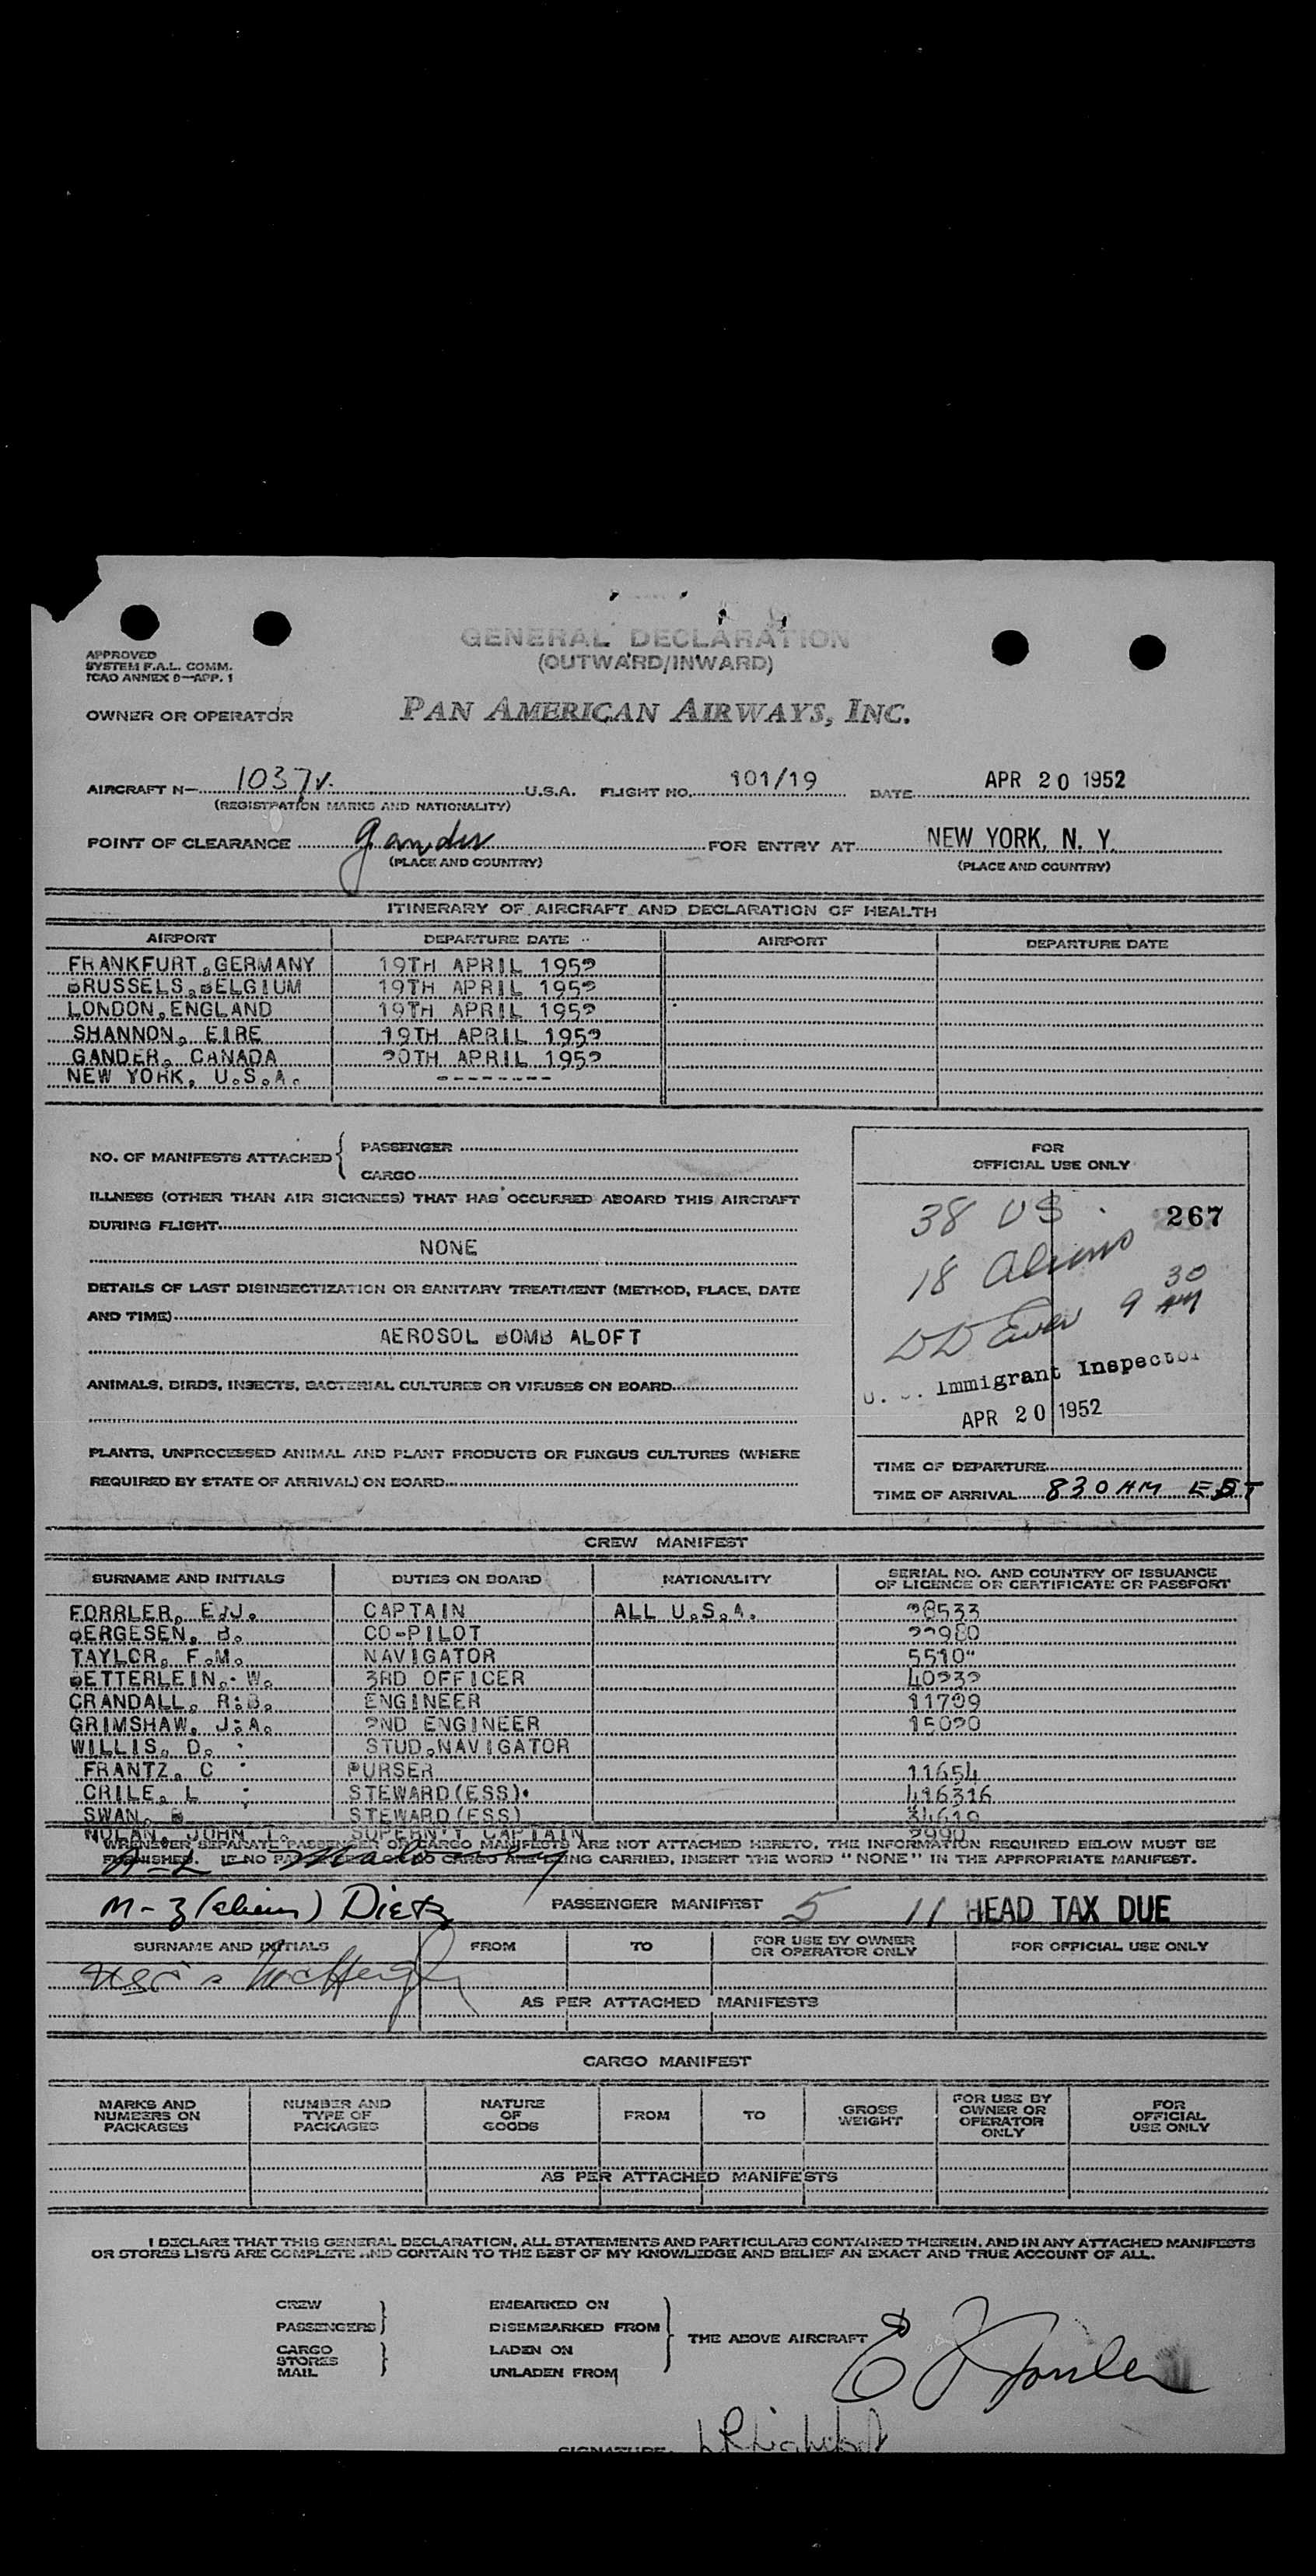 GENERAL DECLARATION
(OUTWARD/INWARD)
APPROVED
SYSTEM F.A.L. COMM.
ICAO ANNEX 9—APP. 1
OWNER OR OPERATOR PAN AMERICAN AIRWAYS, INC.
AIRCRAFT N— 1037V. U.S.A. FLIGHT NO. 101/19 DATE APR 20 1952
(REGISTRATION MARKS AND NATIONALITY)
POINT OF CLEARANCE Gander FOR ENTRY AT NEW YORK, N. Y.
(PLACE AND COUNTRY) (PLACE AND COUNTRY)
ITINERARY OF AIRCRAFT AND DECLARATION OF HEALTH
AIRPORT DEPARTURE DATE AIRPORT DEPARTURE DATE
FRANKFURT, GERMANY 19TH APRIL 1952
BRUSSELS, BELGIUM 19TH APRIL 1952
LONDON, ENGLAND 19TH APRIL 1952
SHANNON, EIRE 19TH APRIL 1952
GANDER, CANADA 20TH APRIL 1952
NEW YORK, U.S.A. --------
NO. OF MANIFESTS ATTACHED { PASSENGER
CARGO
ILLNESS (OTHER THAN AIR SICKNESS) THAT HAS OCCURRED ABOARD THIS AIRCRAFT
DURING FLIGHT
NONE
DETAILS OF LAST DISINSECTIZATION OR SANITARY TREATMENT (METHOD, PLACE, DATE
AND TIME)
AEROSOL BOMB ALOFT
ANIMALS, BIRDS, INSECTS, BACTERIAL CULTURES OR VIRUSES ON BOARD
PLANTS, UNPROCESSED ANIMAL AND PLANT PRODUCTS OR FUNGUS CULTURES (WHERE
REQUIRED BY STATE OF ARRIVAL) ON BOARD
FOR
OFFICIAL USE ONLY
38 US 267
18 Aliens
9 30 AM
U. S. Immigrant Inspector
APR 20 1952
TIME OF DEPARTURE
TIME OF ARRIVAL 830 AM EST
CREW MANIFEST
SURNAME AND INITIALS DUTIES ON BOARD NATIONALITY SERIAL NO. AND COUNTRY OF ISSUANCE
OF LICENCE OR CERTIFICATE OR PASSPORT
FORRLER, E.J. CAPTAIN ALL U.S.A. 28533
BERGESEN, B. CO-PILOT 22980
TAYLOR, F.M. NAVIGATOR
BETTERLEIN, W. 3RD OFFICER 40232
CRANDALL, R.B. ENGINEER 11799
GRIMSHAW, J.A. 2ND ENGINEER 15020
WILLIS, D. STUD.NAVIGATOR
FRANTZ, C PURSER 11654
CRILE, L STEWARD(ESS)
416316
SWAN, B STEWARD(ESS) 34610
NOLAN, JOHN T. SUPERN'Y CAPTAIN 2990
WHENEVER SEPARATE PASSENGER OR CARGO MANIFESTS ARE NOT ATTACHED HERETO, THE INFORMATION REQUIRED BELOW MUST BE
FURNISHED. IF NO PASSENGERS OR NO CARGO ARE BEING CARRIED, INSERT THE WORD "NONE" IN THE APPROPRIATE MANIFEST.
A-L – Maloney
M-Z (aliens) Dietz PASSENGER MANIFEST 5 11 HEAD TAX DUE
SURNAME AND INITIALS FROM TO FOR USE BY OWNER
OR OPERATOR ONLY FOR OFFICIAL USE ONLY
AS PER ATTACHED MANIFESTS
CARGO MANIFEST
MARKS AND
NUMBERS ON
PACKAGES NUMBER AND
TYPE OF
PACKAGES NATURE
OF
GOODS FROM TO GROSS
WEIGHT FOR USE BY
OWNER OR
OPERATOR
ONLY FOR
OFFICIAL
USE ONLY
AS PER ATTACHED MANIFESTS
I DECLARE THAT THIS GENERAL DECLARATION, ALL STATEMENTS AND PARTICULARS CONTAINED THEREIN, AND IN ANY ATTACHED MANIFESTS
OR STORES LISTS ARE COMPLETE AND CONTAIN TO THE BEST OF MY KNOWLEDGE AND BELIEF AN EXACT AND TRUE ACCOUNT OF ALL.
CREW EMBARKED ON
PASSENGERS DISEMBARKED FROM
THE ABOVE AIRCRAFT
CARGO LADEN ON
STORES
MAIL UNLADEN FROM
SIGNATURE